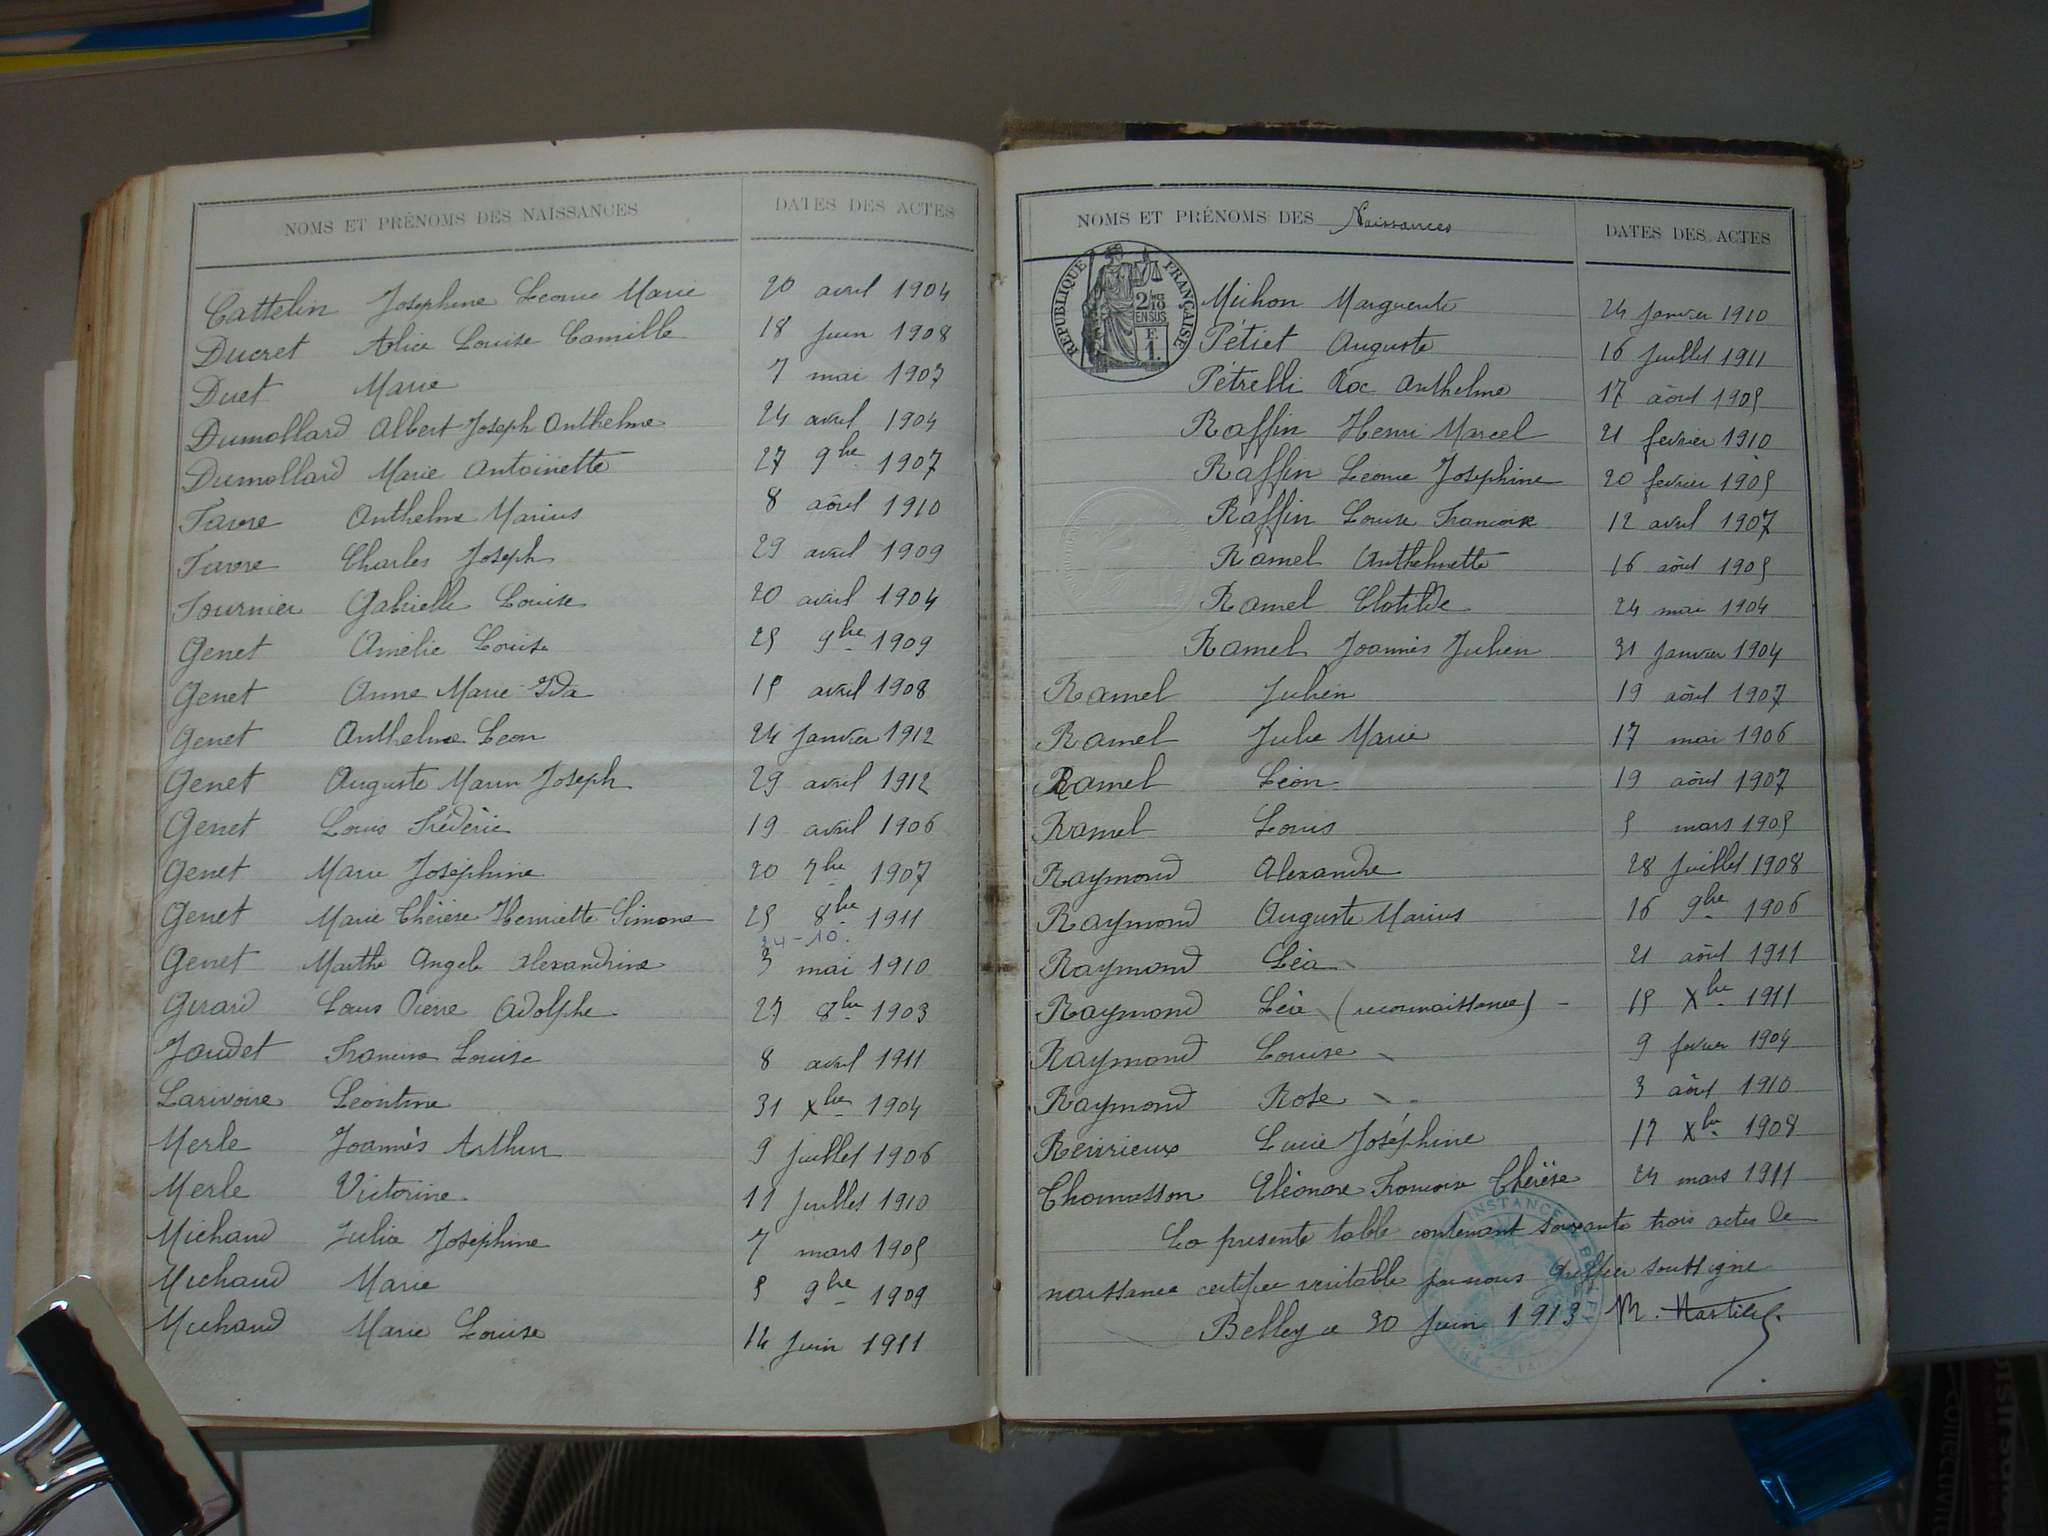 NOMS ET PRÉNOMS DES NAISSANCES DATES DES ACTES
Cattelin Joséphine Léonie Marie 20 avril 1904
Ducret Alice Louise Camille 18 juin 1908
Duet Marie 7 mai 1907
Dumollard Albert Joseph Anthelme 24 avril 1904
Dumollard Marie Antoinette 27 9bre 1907
Favre Anthelme Marius 8 août 1910
Favre Charles Joseph 29 avril 1909
Fournier Gabrielle Louise 20 avril 1904
Genet Amélie Louise 25 9bre 1909
Genet Anne Marie Ida 15 avril 1908
Genet Anthelme Léon 24 janvier 1912
Genet Auguste Marin Joseph 29 avril 1912
Genet Louis Frédéric 19 avril 1906
Genet Marie Joséphine 20 7bre 1907
Genet Marie Thérèse Henriette Simone 25 8bre 1911
24-10.
Genet Marthe Angèle Alexandrine 3 mai 1910
Girard Louis Pierre Adolphe 27 8bre 1903
Jaudet Francine Louise 8 avril 1911
Larivoire Léontine 31 Xbre 1904
Merle Joannès Arthur 9 juillet 1906
Merle Victorine 11 juillet 1910
Michaud Julia Joséphine 7 mars 1905
Michaud Marie 5 9bre 1909
Michaud Marie Louise 14 juin 1911
NOMS ET PRÉNOMS DES Naissances DATES DES ACTES
RÉPUBLIQUE FRANÇAISE
2/10
EN SUS
F.
1.
Michon Marguerite 24 janvier 1910
Pétiet Auguste 16 juillet 1911
Pétrelli Roc Anthelme 17 août 1905
Raffin Henri Marcel 21 février 1910
Raffin Léonie Joséphine 20 février 1905
Raffin Louise Françoise 12 avril 1907
Ramel Anthelmette 16 août 1905
Ramel Clotilde 24 mai 1904
Ramel Joannès Julien 31 janvier 1904
Ramel Julien 19 août 1907
Ramel Julie Marie 17 mai 1906
Ramel Léon 19 août 1907
Ramel Louis 5 mars 1905
Raymond Alexandre 28 juillet 1908
Raymond Auguste Marius 16 9bre 1906
Raymond Léa 21 août 1911
Raymond Léa (reconnaissance) - 15 Xbre 1911
Raymond Louise 9 février 1904
Raymond Rose 3 août 1910
Revirieux Lucie Joséphine 17 Xbre 1908
Thomasson Eléonore Françoise Thérèse 24 mars 1911
La présente table contenant soixante trois actes de
naissance certifiée véritable par nous Greffier soussigné
Belley le 30 juin 1913 M.